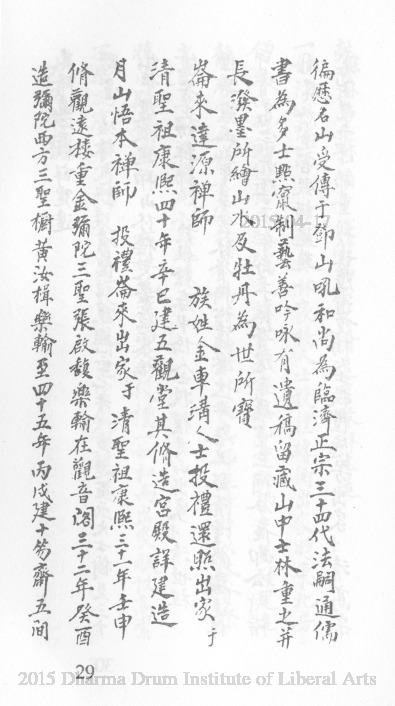 徧歷名山受傳于鄧山吼和尚為臨濟正宗三十四代法嗣通儒
書為多士點竄制藝善吟咏有遺稿留藏山中士林重之并
長潑墨所繪山水及牡丹為世所寶
崙來達源禪師 族姓金車溝人士投禮還照出家于
清聖祖康熙四十年辛巳建五觀堂其脩造宮殿詳建造
月山悟本禪師 投禮崙來出家于清聖祖康熙三十一年壬申
脩觀遠樓重金彌陀三聖張啟馥樂輸在觀音閣三十二年癸酉
造彌陀西方三聖櫥黃汝楫樂輸至四十五年丙戌建十笏齋五間
2015-04-17
29
2015 Dharma Drum Institute of Liberal Arts